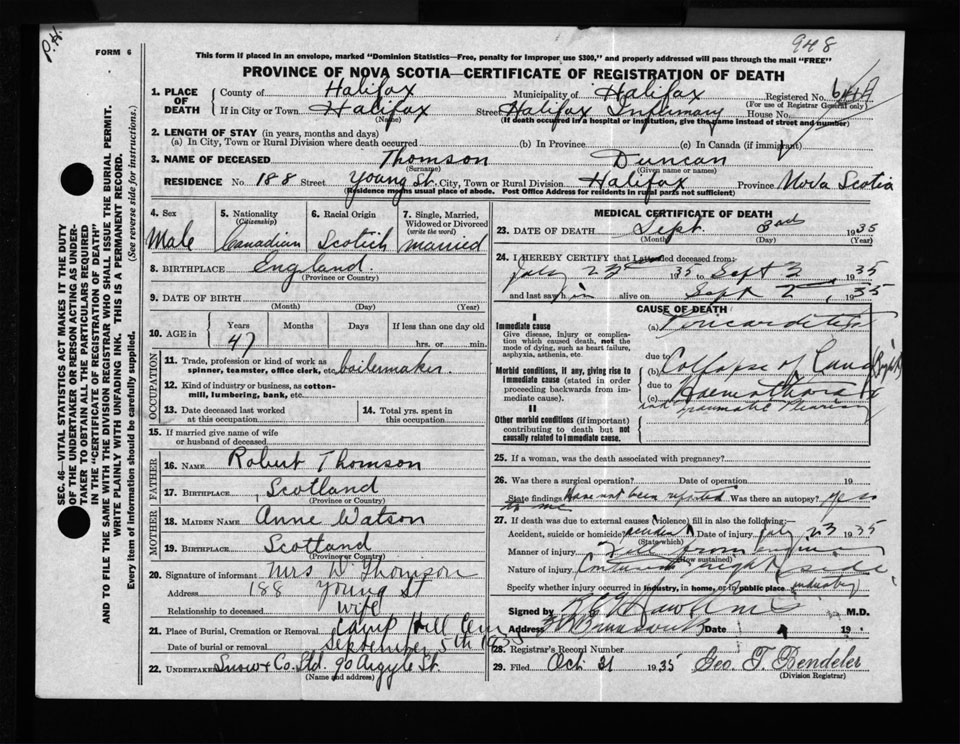 P.H.
948
FORM 6
This form if placed in an envelope, marked "Dominion Statistics—Free, penalty for improper use $300," and properly addressed will pass through the mail "FREE"
PROVINCE OF NOVA SCOTIA—CERTIFICATE OF REGISTRATION OF DEATH
1. PLACE OF DEATH County of Halifax Municipality of Halifax Registered No.
(For use of Registrar General only)
If in City or Town Halifax Street Halifax Infirmary House No.
(Name) (If death occurred in a hospital or institution, give the name instead of street and number)
2. LENGTH OF STAY (in years, months and days)
(a) In City, Town or Rural Division where death occurred (b) In Province (c) In Canada (if immigrant)
3. NAME OF DECEASED Thomson Duncan
(Surname) (Given name or names)
RESIDENCE No. 188 Street Young St. City, Town or Rural Division Halifax Province Nova Scotia
(Residence means usual place of abode. Post Office Address for residents in rural parts not sufficient)
4. Sex Male
5. Nationality (Citizenship) Canadian
6. Racial Origin Scotich
7. Single, Married, Widowed or Divorced (write the word) married
8. BIRTHPLACE England.
(Province or Country)
9. DATE OF BIRTH
(Month) (Day) (Year)
10. AGE in Years 47 Months Days If less than one day old
hrs. or min.
OCCUPATION
11. Trade, profession or kind of work as spinner, teamster, office clerk, etc. boilermaker.
12. Kind of industry or business, as cotton-mill, lumbering, bank, etc.
13. Date deceased last worked at this occupation
14. Total yrs. spent in this occupation
15. If married give name of wife or husband of deceased
FATHER
16. NAME Robert Thomson
17. BIRTHPLACE Scotland
(Province or Country)
MOTHER
18. MAIDEN NAME Anne Watson
19. BIRTHPLACE Scotland
(Province or Country)
20. Signature of informant Mrs D. Thomson
Address 188 Young St
Relationship to deceased wife
21. Place of Burial, Cremation or Removal Camp Hill Cem
Date of burial or removal September 5th 1935
22. UNDERTAKER Snow & Co. Ltd. 90 Argyle St.
(Name and address)
MEDICAL CERTIFICATE OF DEATH
23. DATE OF DEATH Sept. 3rd 1935
(Month) (Day) (Year)
24. I HEREBY CERTIFY that I attended deceased from:
July 23rd 1935 to Sept 3 1935
and last saw him alive on Sept 2 1935
CAUSE OF DEATH
I
Immediate cause
Give disease, injury or complication which caused death, not the mode of dying, such as heart failure, asphyxia, asthenia, etc.
(a)
due to
Morbid conditions, if any, giving rise to immediate cause (stated in order proceeding backwards from immediate cause).
(b) Collapse of Lung (Right)
due to
(c) Haemothorax
II
Other morbid conditions (if important) contributing to death but not causally related to immediate cause.
traumatic Pleurisy
25. If a woman, was the death associated with pregnancy?
26. Was there a surgical operation? Date of operation 19
State findings Have not been reported to me Was there an autopsy? yes
27. If death was due to external causes (violence) fill in also the following:
Accident, suicide or homicide Accident Date of injury July 23 1935
(State which)
Manner of injury Fall from
(How sustained)
Nature of injury Contused right side
Specify whether injury occurred in industry, in home, or in public place industry
Signed by M.D.
Address Brunswick Date 19
28. Registrar's Record Number
29. Filed Oct 21 1935 Geo. T. Bendeler
(Division Registrar)
SEC. 46—VITAL STATISTICS ACT MAKES IT THE DUTY
OF THE UNDERTAKER OR PERSON ACTING AS UNDER-
TAKER TO OBTAIN ALL THE PARTICULARS REQUIRED
IN THE "CERTIFICATE OF REGISTRATION OF DEATH"
AND TO FILE THE SAME WITH THE DIVISION REGISTRAR WHO SHALL ISSUE THE BURIAL PERMIT.
WRITE PLAINLY WITH UNFADING INK. THIS IS A PERMANENT RECORD.
Every item of information should be carefully supplied. (See reverse side for instructions.)